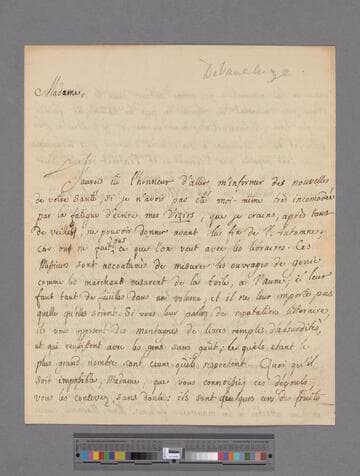 Madame,
J'aurois eu l'honneur d'aller m'informer des nouvelles
de votre santé, si je n'avois pas été moi-même très incomodée
par la fatigue d'écrire mes Vizirs, que je crains, après tant
de veilles, ne pouvoir donner avant la fin de l'Automne,
Car on ne fait pas ce que l'on veut avec les libraires. Ces
Messieurs sont accoutumés de mesurer les ouvrages de genie
comme les marchans mesurent de la toile, à l'aune; il leur
faut tant de feuilles dans un volume, et il ne leur importe pas
quelles qu'elles soient. Si vous leur parlez de reputation litteraire,
ils vous oposent des montagnes de livres remplis d'absurdités,
et qui reussissent avec les gens sans goût; lesquels étant le
plus grand nombre sont ceux qu'ils respectent. Quoi qu'il
soit impossible, Madame, que vous connoissiez ces degouts,
vous les concevez sans doute; ils sont quelques uns des fruits